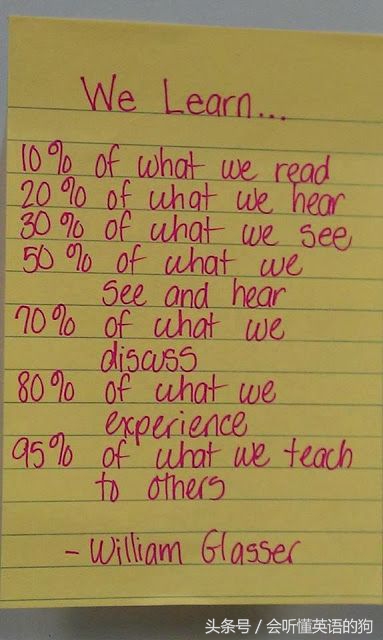 We Learn...
10% of what we read
20% of what we hear
30% of what we see
50% of what we
see and hear
70% of what we
discuss
80% of what we
experience
95% of what we teach
to others
- William Glasser
头条号 / 会听懂英语的狗